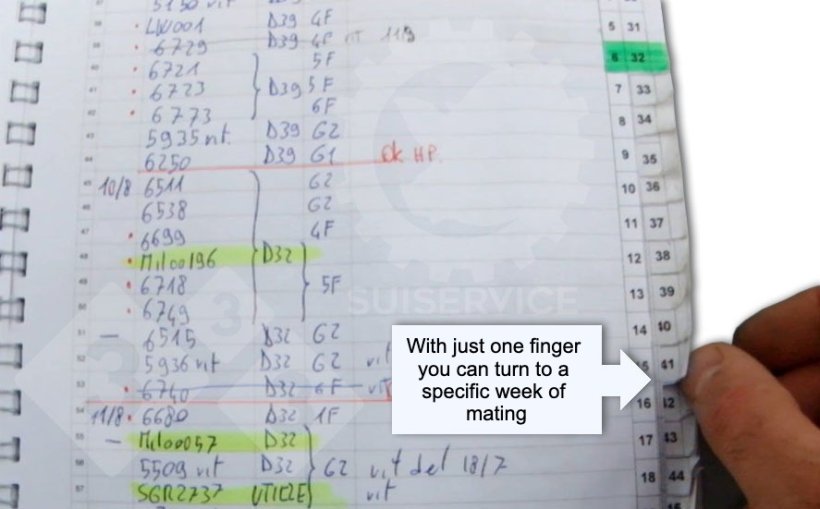 5130 vit
LW001 D39 4F
6729 D39 4F vit 11/9
6721 5F
6723 D39 5F
6773 6F
43 5935 vit. D39 G2
44 6250 D39 G1 ok HP.
45 10/8 6511 G2
6538 G2
47 6699 4F
48 Mil00196 D32
49 6718 5F
50 6749
51 — 6515 D32 G2
52 5936 vit D32 G2 vit
53 6740 D32 6F
54 11/8 6680 D32 1F
55 — Mil00057 D32
56 5509 vit D32 G2 vit del 18/7
57 SGR2737 vit
5 31
6 32
7 33
8 34
9 35
10 36
11 37
12 38
13 39
14 40
41
16 42
17 43
18 44
With just one finger
you can turn to a
specific week of
mating
333
SUISERVICE